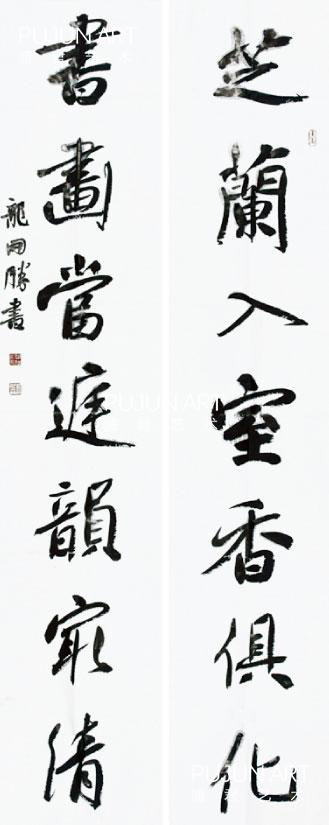 芝蘭入室香俱化
書畫當庭韻最清
龍開勝書
PUJUN ART
PUJUN ART
PUJUN ART